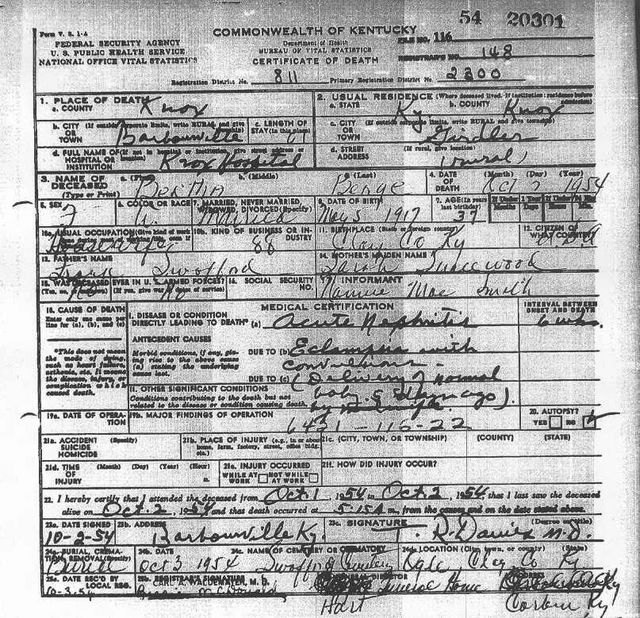 54 20301
Form V. S. 1-A
COMMONWEALTH OF KENTUCKY
FILE NO. 116
FEDERAL SECURITY AGENCY
U. S. PUBLIC HEALTH SERVICE
NATIONAL OFFICE VITAL STATISTICS
Department of Health
BUREAU OF VITAL STATISTICS
CERTIFICATE OF DEATH
REGISTRAR'S NO. 148
Registration District No. 811 Primary Registration District No. 2300
1. PLACE OF DEATH
a. COUNTY Knox
2. USUAL RESIDENCE (Where deceased lived. If institution: residence before admission)
a. STATE Ky b. COUNTY Knox
b. CITY OR TOWN Barbourville
c. LENGTH OF STAY (in this place)
c. CITY OR TOWN Girdler
d. FULL NAME OF HOSPITAL OR INSTITUTION Knox Hospital
d. STREET ADDRESS (If rural, give location) (rural)
3. NAME OF DECEASED (Type or Print)
a. (First) b. (Middle) c. (Last) Benge
4. DATE OF DEATH (Month) (Day) (Year) Oct 2 1954
5. SEX F
6. COLOR OR RACE W.
7. MARRIED, NEVER MARRIED, WIDOWED, DIVORCED (Specify) Married
8. DATE OF BIRTH May 5 1917
9. AGE (In years last birthday) 37
If Under 1 Year Months Days
10a. USUAL OCCUPATION
10b. KIND OF BUSINESS OR INDUSTRY 88
11. BIRTHPLACE (State or foreign country) Clay Co Ky
12. CITIZEN OF WHAT COUNTRY?
13. FATHER'S NAME Swofford
14. MOTHER'S MAIDEN NAME Sarah
15. WAS DECEASED EVER IN U.S. ARMED FORCES? No
16. SOCIAL SECURITY NO.
17. INFORMANT Mae Smith
18. CAUSE OF DEATH
Enter only one cause per line for (a), (b), and (c)
MEDICAL CERTIFICATION
INTERVAL BETWEEN ONSET AND DEATH
I. DISEASE OR CONDITION DIRECTLY LEADING TO DEATH* (a) Acute Nephritis 6 wks.
*This does not mean the mode of dying, such as heart failure, asthenia, etc. It means the disease, injury, or complication which caused death.
ANTECEDENT CAUSES
Morbid conditions, if any, giving rise to the above cause (a) stating the underlying cause last.
DUE TO (b) Eclampsia with convulsions -
DUE TO (c) (Delivery of normal baby
II. OTHER SIGNIFICANT CONDITIONS
Conditions contributing to the death but not related to the disease or condition causing death.
19a. DATE OF OPERATION
19b. MAJOR FINDINGS OF OPERATION
6421-116-22
20. AUTOPSY? YES NO
21a. ACCIDENT SUICIDE HOMICIDE (Specify)
21b. PLACE OF INJURY (e.g., in or about home, farm, factory, street, office bldg., etc.)
21c. (CITY, TOWN, OR TOWNSHIP) (COUNTY) (STATE)
21d. TIME OF INJURY (Month) (Day) (Year) (Hour)
21e. INJURY OCCURRED WHILE AT WORK NOT WHILE AT WORK
21f. HOW DID INJURY OCCUR?
22. I hereby certify that I attended the deceased from Oct. 1 1954 to Oct. 2 1954 that I last saw the deceased
alive on Oct. 2 1954 and that death occurred at 5:15A m., from the causes and on the date stated above.
23a. DATE SIGNED 10-2-54
23b. ADDRESS Barbourville Ky.
23c. SIGNATURE (Degree or title) T. R. Davies M.D.
24a. BURIAL, CREMATION, REMOVAL (Specify) Burial
24b. DATE Oct 3 1954
24c. NAME OF CEMETERY OR CREMATORY Swafford Cemetery
24d. LOCATION (City, town, or county) (State) Ogle, Clay Co Ky
25a. DATE REC'D BY LOCAL REG. 10-3-54
25b. REGISTRAR'S SIGNATURE
FUNERAL DIRECTOR Hart Funeral Home
ADDRESS Corbin Ky